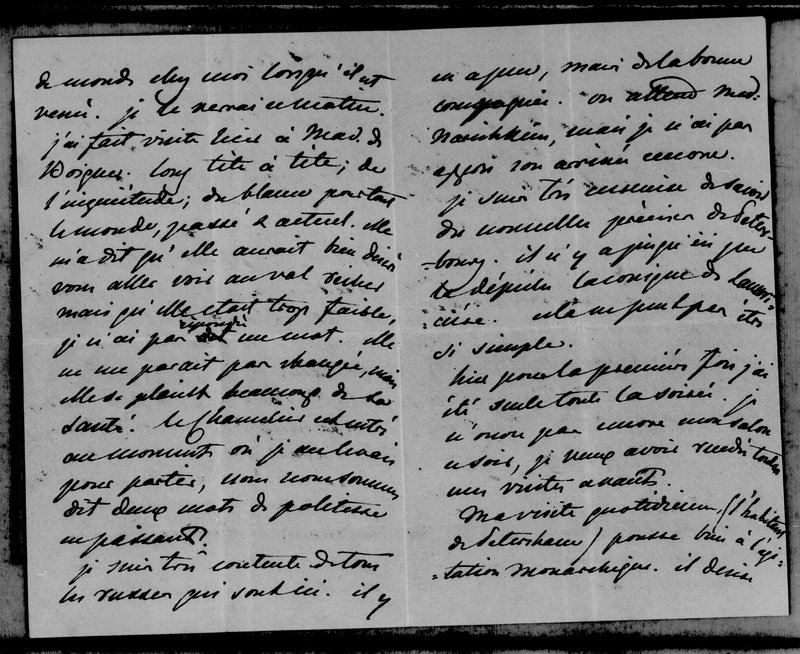 de monde chez moi lorsqu'il est
venu. je le verrai ce matin.
j'ai fait visite hier à Mad. de
Boigne. long tête à tête; de
l'inquiétude; du blâme pour tout
le monde, passé & actuel. Elle
m'a dit qu'elle aurait bien désiré
vous aller voir au val richer
mais qu'elle était trop faible,
je n'ai pas répondu un mot. Elle
ne me parait pas changée, mais
elle se plaint beaucoup de sa
santé. le Chancelier est entré
au moment où je me levais
pour partir, nous nous sommes
dit deux mots de politesse
en passant.
je suis très contente de tous
les russes qui sont ici. il y
en a peu, mais de la bonne
compagnie. on attend Mad.
Narishkin, mais je n'ai pas
appris son arrivée encore.
je suis très curieuse de savoir
des nouvelles précises de Péters-
-bourg. il n'y a jusqu'ici que
la dépêche laconique de Lamori-
-cière. cela ne peut pas être
si simple.
hier pour la première fois j'ai
été seule toute la soirée. je
n'ouvre pas encore mon salon
le soir, je veux avoir rendu toutes
mes visites avant.
Ma visite quotidienne, (l'habitant
de Petersham) pousse bien à l'agi-
-tation monarchique. il désire